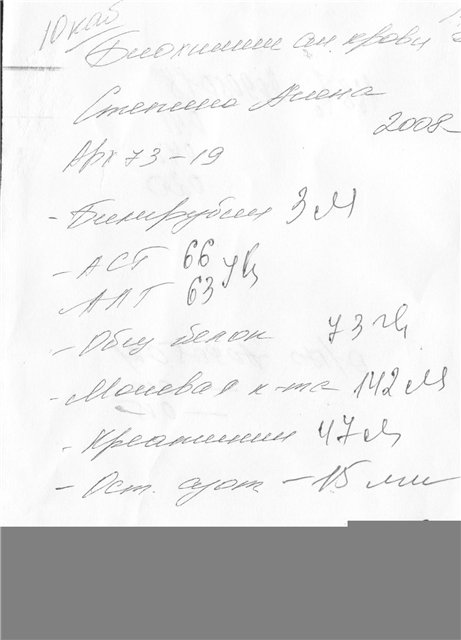 10 каб
Биохимич ан. крови
Степина Алена
2008
Арх 73-19
- Билирубин 3 м
- АСТ 66
АЛТ 63
- Общ белок 73 г/л
- Мочевая к-та 142 м
- Креатинин 47 м
- Ост. азот - 15 мм